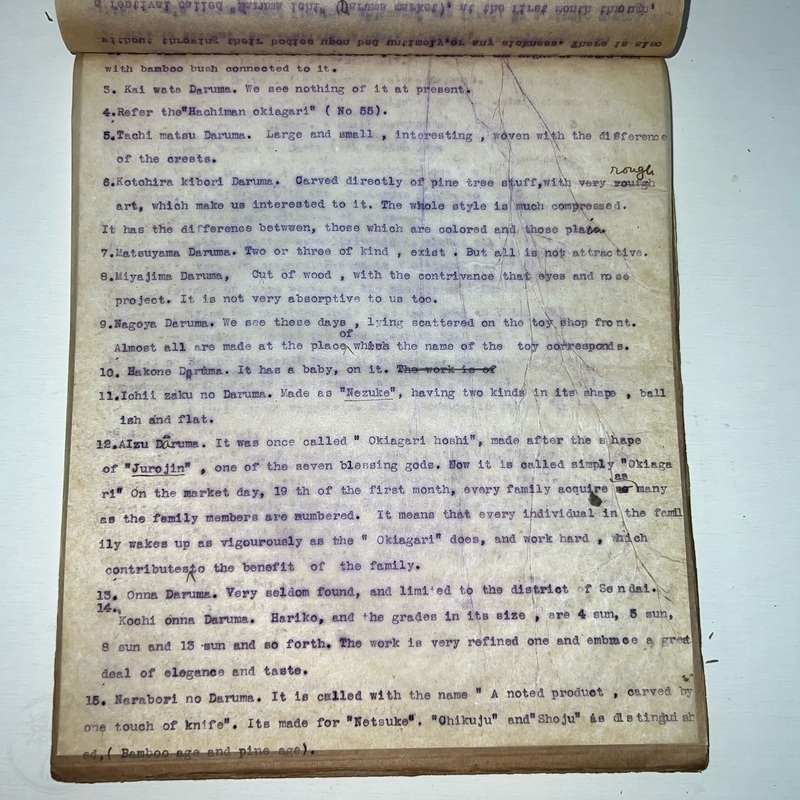 a festival called "Daruma Ichi" (Daruma market), at the first month though,
without throwing their bodies upon bed untimely or any sickness. There is also
with bamboo bush connected to it.
3. Kai wata Daruma. We see nothing of it at present.
4.Refer the"Hachiman okiagari" ( No 55).
5.Tachi matsu Daruma. Large and small , interesting , woven with the difference
of the crests.
rough
6.Kotohira kibori Daruma. Carved directly of pine tree stuff,with very rough
art, which make us interested to it. The whole style is much compressed.
It has the difference betwwen, those which are colored and those plain.
7.Matsuyama Daruma. Two or three of kind , exist . But all is not attractive.
8.Miyajima Daruma, Cut of wood , with the contrivance that eyes and nose
project. It is not very absorptive to us too.
9.Nagoya Daruma. We see these days , lying scattered on the toy shop front.
of
Almost all are made at the place which the name of the toy corresponds.
10. Hakone Daruma. It has a baby, on it. The work is of
11.Ichii zaku no Daruma. Made as "Nezuke", having two kinds in its shape , ball
ish and flat.
12.AIzu Daruma. It was once called " Okiagari hoshi", made after the shape
of "Jurojin" , one of the seven blessing gods. Now it is called simply "Okiaga
as
ri" On the market day, 19 th of the first month, every family acquire so many
as the family members are numbered. It means that every individual in the famil
ily wakes up as vigourously as the " Okiagari" does, and work hard , which
contributes to the benefit of the family.
13. Onna Daruma. Very seldom found, and limited to the district of Sendai.
14.
Kochi onna Daruma. Hariko, and the grades in its size , are 4 sun, 5 sun,
8 sun and 13 sun and so forth. The work is very refined one and embrace a great
deal of elegance and taste.
15. Narabori no Daruma. It is called with the name " A noted product , carved by
one touch of knife". Its made for "Netsuke". "Chikuju" and"Shoju" is distinguish
ed,( Bamboo age and pine age).